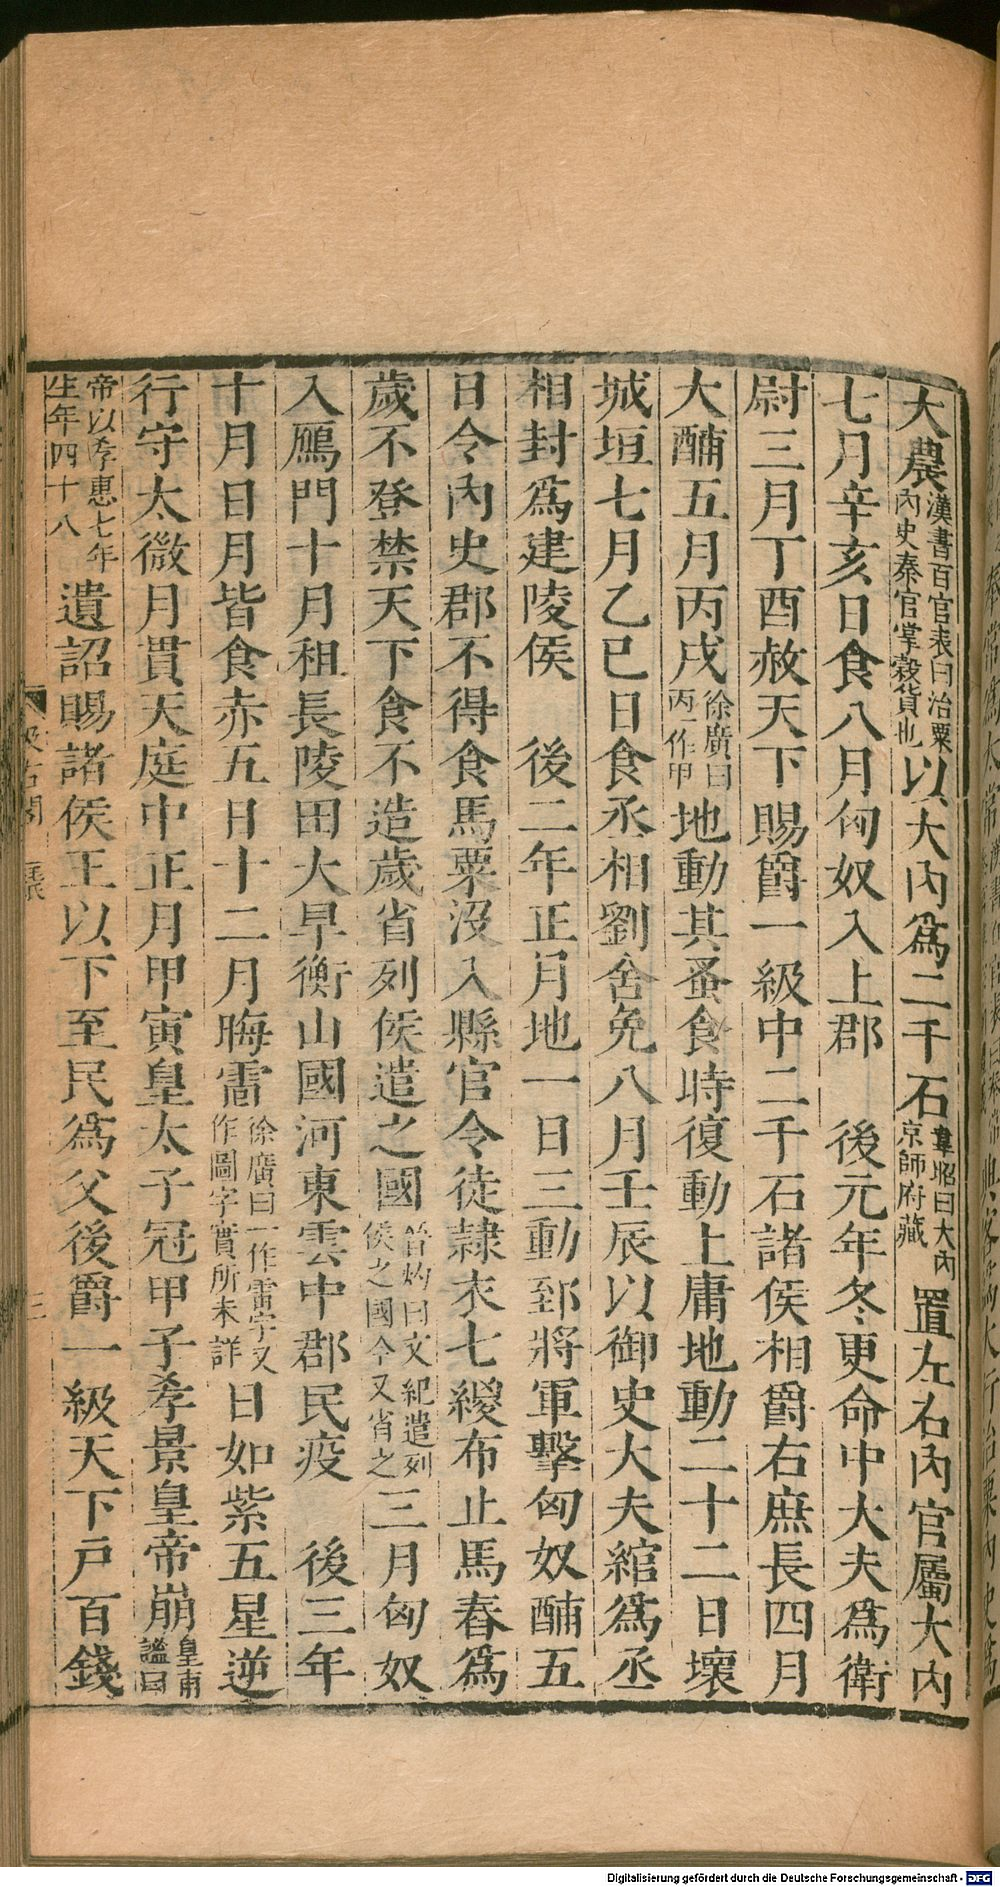 大農漢書百官表曰治粟內史秦官掌穀貨也以大內爲二千石韋昭曰大內京師府藏置左右內官屬大內
七月辛亥日食八月匈奴入上郡　後元年冬更命中大夫爲衛
尉三月丁酉赦天下賜爵一級中二千石諸侯相爵右庶長四月
大酺五月丙戌徐廣曰丙一作甲地動其蚤食時復動上庸地動二十二日壞
城垣七月乙巳日食丞相劉舍免八月壬辰以御史大夫綰爲丞
相封爲建陵侯　後二年正月地一日三動郅將軍擊匈奴酺五
日令內史郡不得食馬粟沒入縣官令徒隸衣七緵布止馬舂爲
歲不登禁天下食不造歲省列侯遣之國晉灼曰文紀遣列侯之國今又省之三月匈奴
入鴈門十月租長陵田大旱衡山國河東雲中郡民疫　後三年
十月日月皆食赤五日十二月晦䨓徐廣曰一作雷字又作圖字實所未詳日如紫五星逆
行守太微月貫天庭中正月甲寅皇太子冠甲子孝景皇帝崩皇甫謐曰
帝以孝惠七年生年四十八遺詔賜諸侯王以下至民爲父後爵一級天下戶百錢
三
Digitalisierung gefördert durch die Deutsche Forschungsgemeinschaft - DFG